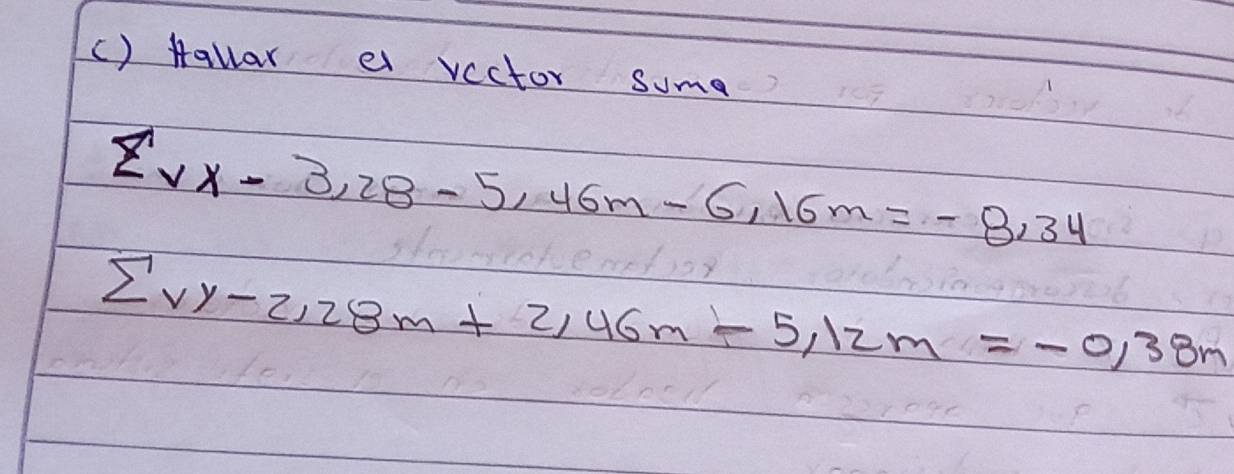 c) Hallar el vector suma
Σvx - 3,28 - 5,46m - 6,16m = - 8,34
Σvy - 2,28m + 2,46m - 5,12m = - 0,38m